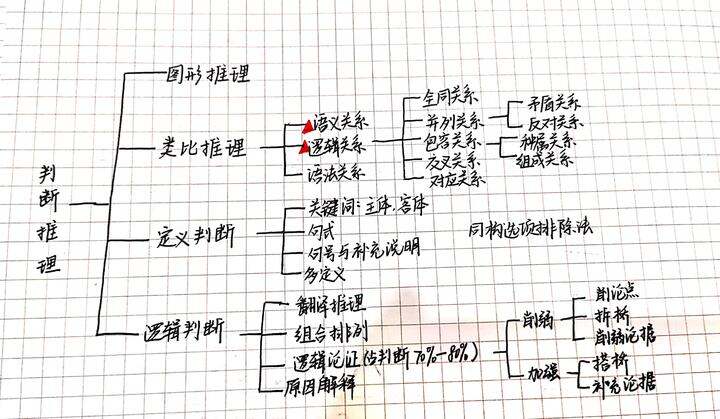 判断推理
图形推理
类比推理
语义关系
逻辑关系
语法关系
全同关系
并列关系
包容关系
交叉关系
对应关系
矛盾关系
反对关系
种属关系
组成关系
定义判断
关键词：主体、客体
句式
句号与补充说明
多定义
同构选项排除法
逻辑判断
翻译推理
组合排列
逻辑论证(占判断70%-80%)
原因解释
削弱
加强
削论点
拆桥
削弱论据
搭桥
补充论据